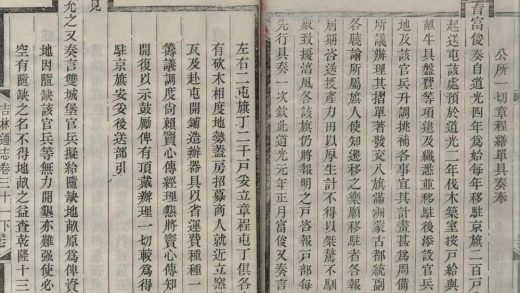 公所一切章程繕單具奏奉
旨富俊奏自道光四年為始每年移駐京旗二百戶
起送屯該處預於道光二年伐木築室按戶給與
畝牛具盤費等項建及纖悉並移駐後添設官兵
地及該官兵升調挑補各事宜其計畫甚為周備
所議辦理其摺單著發交八旗滿洲蒙古都統副
各曉諭所屬旗人使知遷移之樂願移駐者各報
屆期咨送授產力田以厚生計不得以桀驁不馴
致擾滋風各該旗仍將報明之戶咨報戶部每
先行具奏一次欽此道光元年正月富俊又奏言
左右二屯旗丁二千戶妥立章程屯丁俱各
有砍木相度地勢蓋房招募商人就近立窰
瓦及赴屯開鋪造辦器具以省運費種種
籌議調度尚賴竇心傳經理懇將竇心傳知
開復以示鼓勵俾有頂戴辦理一切較為得
駐京旗安妥後送部引
見
允之又奏言雙城堡官兵擬給隨缺地畝原為俾資
地因隨缺該官兵等無力開墾亦難強使必
空有隨缺之名不得地畝之益查乾隆十三
吉林通志卷三十一下